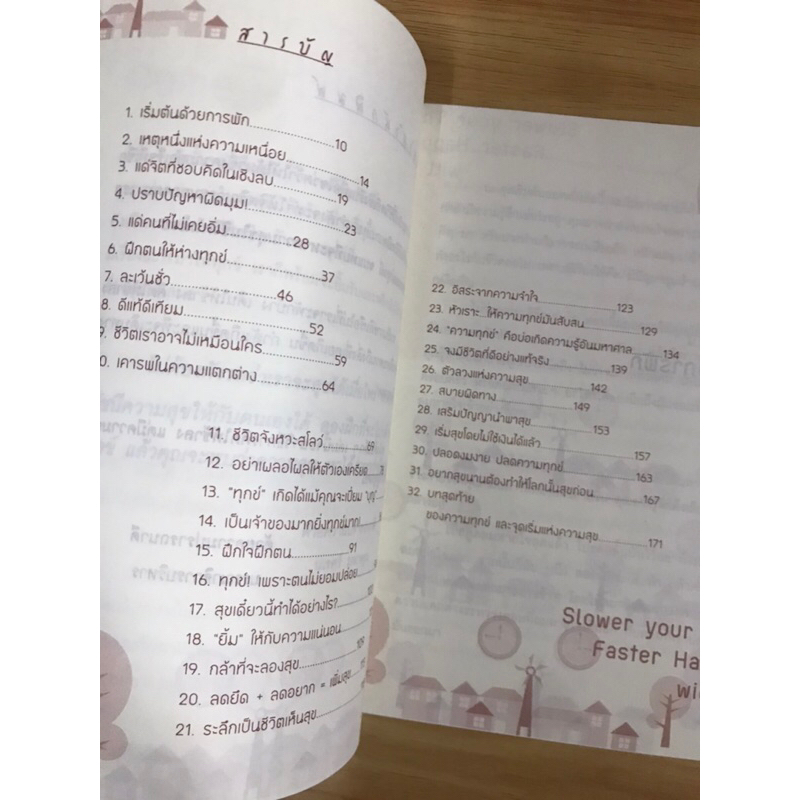 สารบัญ
1. เริ่มต้นด้วยการพัก 10
2. เหตุหนึ่งแห่งความเหนื่อย 14
3. แด่จิตที่ชอบคิดในเชิงลบ 19
4. ปราบปัญหาผิดมุม! 23
5. แด่คนที่ไม่เคยอิ่ม 28
6. ฝึกตนให้ห่างทุกข์ 37
7. ละเว้นชั่ว 46
8. ดีแท้ดีเทียม 52
9. ชีวิตเราอาจไม่เหมือนใคร 59
0. เคารพในความแตกต่าง 64
11. ชีวิตจังหวะสโลว์ 69
12. อย่าเผลอไผลให้ตัวเองเครียด
13. "ทุกข์" เกิดได้แม้คุณจะเปี่ยม "บุญ"
14. เป็นเจ้าของมากยิ่งทุกข์มาก!
15. ฝึกใจฝึกตน 91
16. ทุกข์! เพราะตนไม่ยอมปล่อย
17. สุขเดี๋ยวนี้ทำได้อย่างไร?
18. "ยิ้ม" ให้กับความแน่นอน
19. กล้าที่จะลองสุข
20. ลดยึด + ลดอยาก = เพิ่มสุข
21. ระลึกเป็นชีวิตเห็นสุข
22. อิสระจากความจำใจ 123
23. หัวเราะ...ให้ความทุกข์มันสับสน 129
24. "ความทุกข์" คือบ่อเกิดความรู้อันมหาศาล 134
25. จงมีชีวิตที่ดีอย่างแท้จริง 139
26. ตัวลวงแห่งความสุข 142
27. สบายผิดทาง 149
28. เสริมปัญญานำพาสุข 153
29. เริ่มสุขโดยไม่ใช้เงินได้แล้ว 157
30. ปลอดงมงาย ปลดความทุกข์ 163
31. อยากสุขนานต้องทำให้โลกนั้นสุขก่อน 167
32. บทสุดท้าย
ของความทุกข์ และจุดเริ่มแห่งความสุข 171
Slower your
Faster Ha
wi